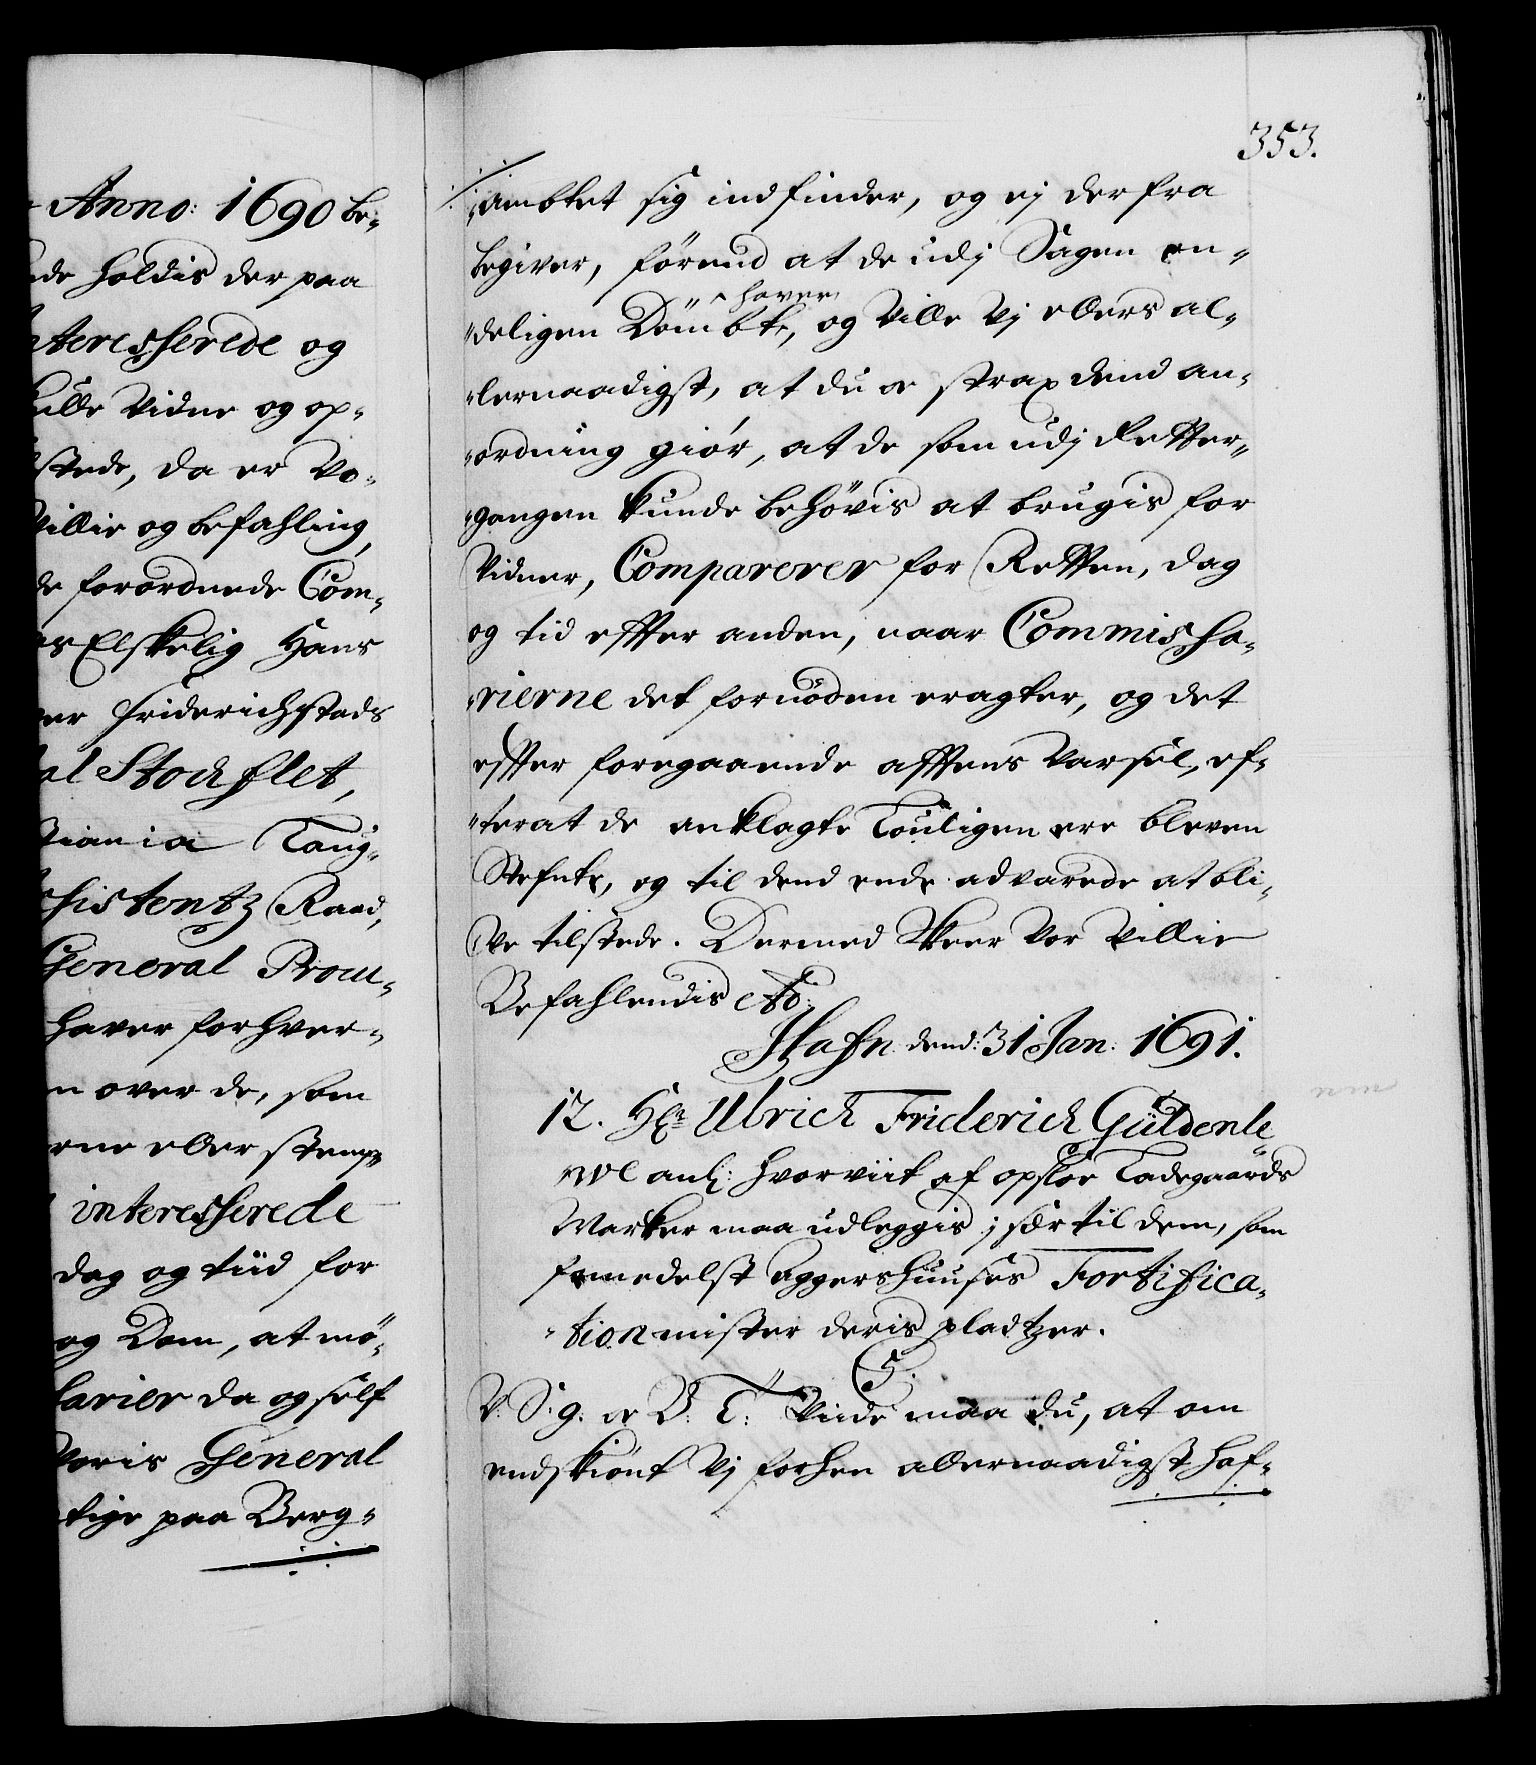 - Anno: 1690 be-
de holdis der paa
nteresserede og
ulle Vidne og op-
stede, da er Vo-
Villie og befahling,
de forordnede Com-
es Elskelig Hans
er Friderichstads
al Stochflet,
tiania Laug-
sistentz Raad,
General Procu-
haver forhver-
n over de, som
rne eller stemp-
interesserede
dag og tiid for
og Dom, at mö-
sarier da og self
Voris General
tige paa Berg-
353.
ambtet sig indfinder, og ej der fra
begiver, förend at de udj Sagen en-
deligen Dömbt haver, og Ville Vj ellers al-
lernaadigst, at du oc strax dend an-
ordning giör, at de som udj Retter-
gangen kunde behövis at brugis for
Vidner, Comparerer for Retten, dag
og tid effter anden, naar Commissa-
rierne det fornöden eragter, og det
effter foregaaende afftens Varsel, ef-
terat de anklagte Louligen ere bleven
Stefnte, og til dend ende advarede at bli-
ve tilstede. Dermed Skeer Vor Villie
Befahlendis etc:
Hafn dend: 31 Jan: 1691.
12. Hr. Ulrich Friderich Güldenle
we anl: hvorviit af opsloe Ladegaards
Marker maa udleggis j sær til dem, som
formedelst Aggershuuses Fortifica-
tion mister deris pladtzer.
V. S. g: oc B: T: Viide maa du, at om
endskiönt Vj forhen allernaadigst haf-